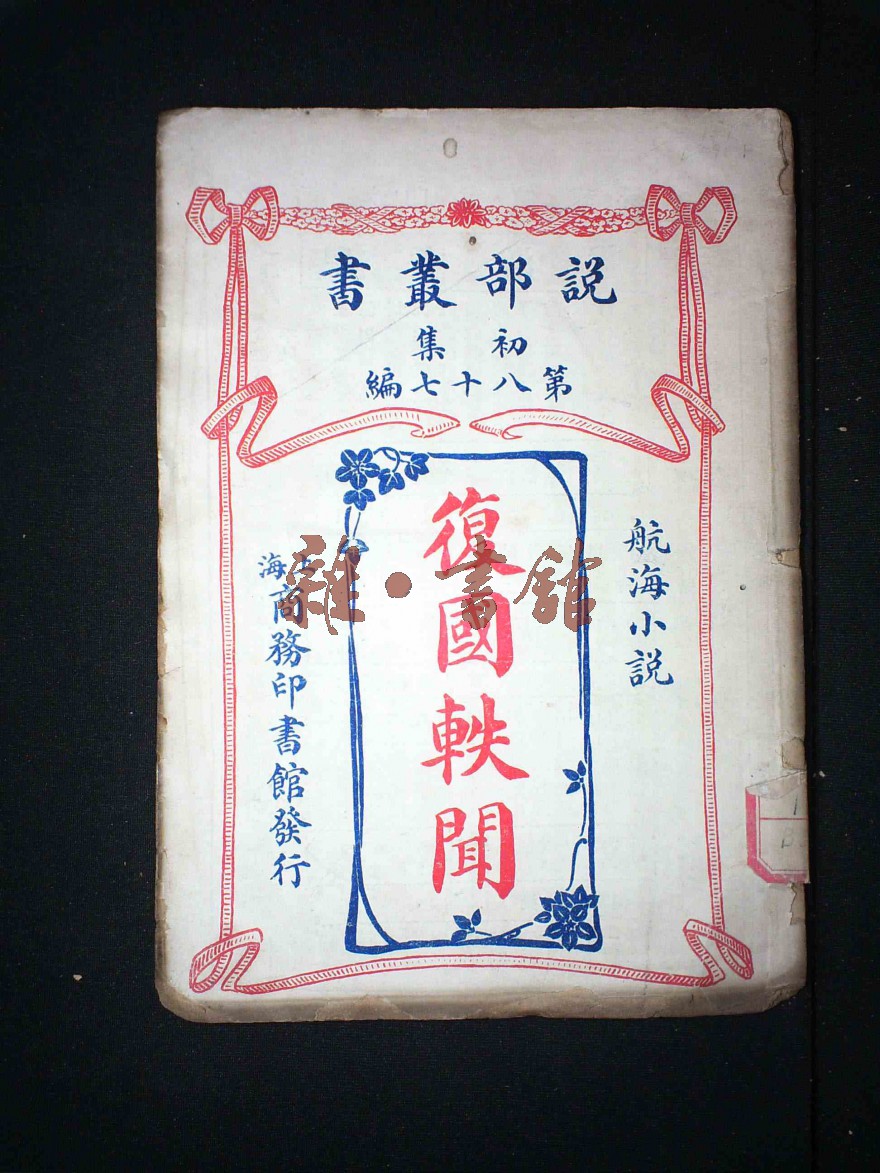 説部叢書
初集
第八十七編
航海小説
復國軼聞
上海商務印書館發行
雜·書館
1
B